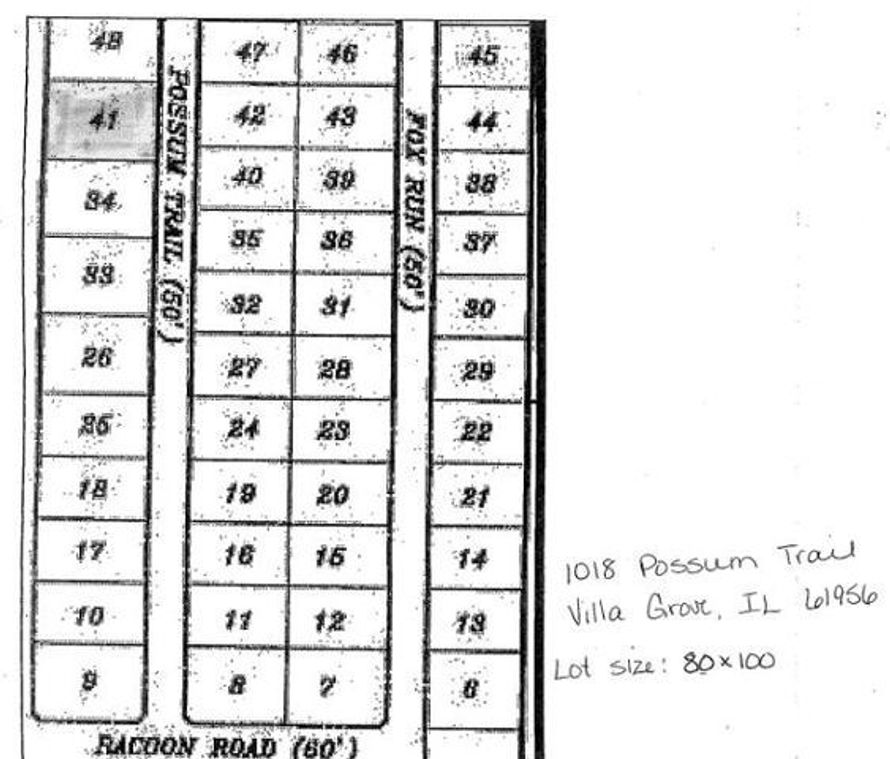 48 47 46 45
41 42 43 44
34 40 39 38
33 35 36 37
26 32 31 30
25 27 28 29
18 24 23 22
17 19 20 21
10 16 15 14
9 11 12 13
8 7 6
POSSUM TRAIL (50')
FOX RUN (50')
RACOON ROAD (60')
1018 Possum Trail
Villa Grove, IL 61956
Lot size: 80x100